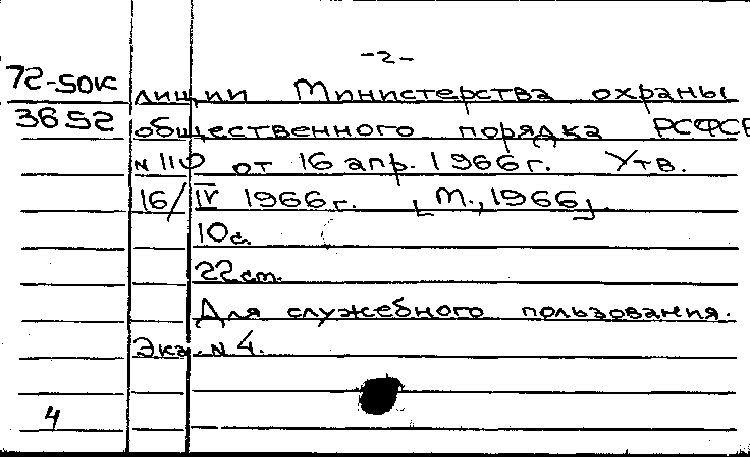 -2-
72-50к лиции Министерства охраны
3652 общественного порядка РСФСР
N 110 от 16 апр. 1966г. Утв.
16/IV 1966г. [М., 1966].
10с.
22см.
Для служебного пользования.
Экз. N 4.
4